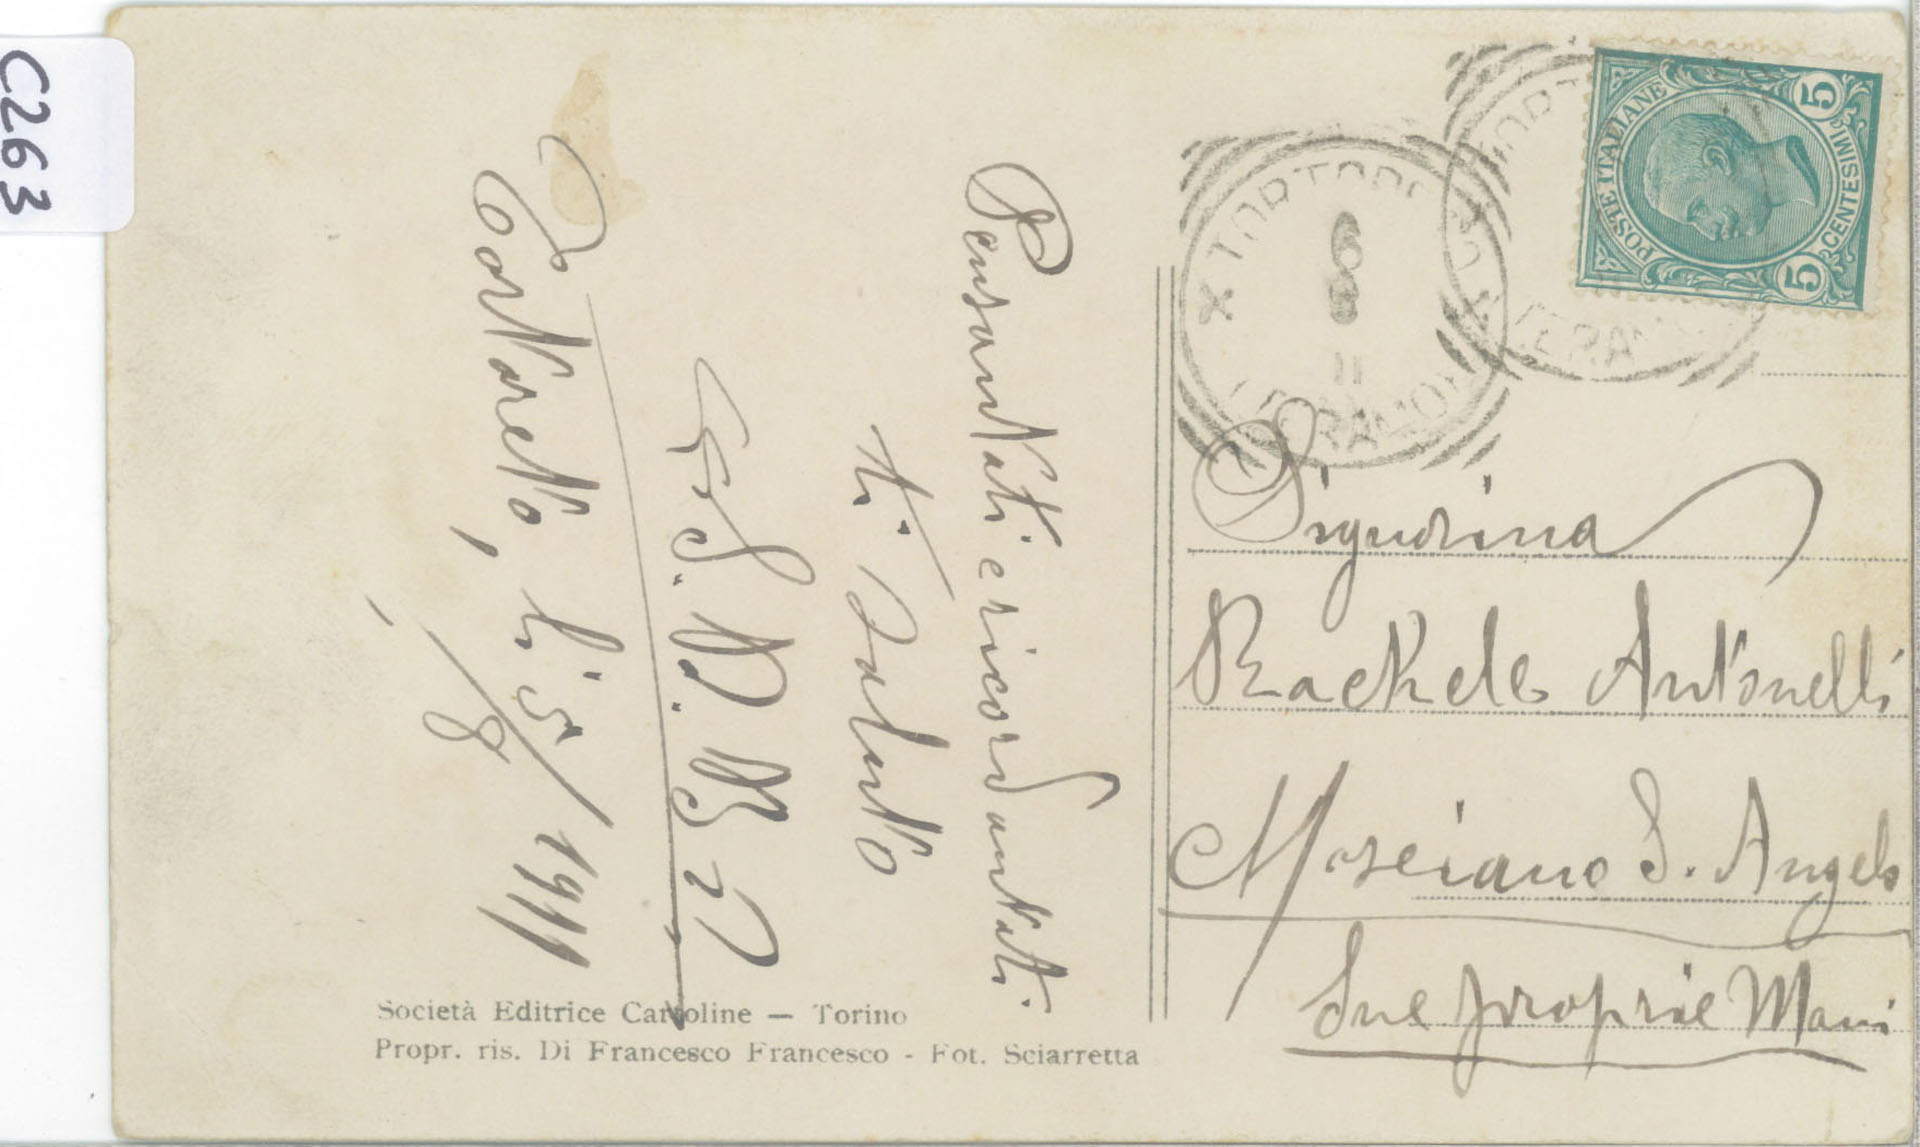 C263
Pensandoti e ricordandoti
ti saluto
Tortoreto, li 5/8 1911
POSTE ITALIANE
CENTESIMI
5
5
TORTORETO
6
8
11
TERAMO
TERAMO
Signorina
Rachele Antonelli
Mosciano S. Angelo
Sue proprie Mani
Società Editrice Cartoline — Torino
Propr. ris. Di Francesco Francesco - Fot. Sciarretta